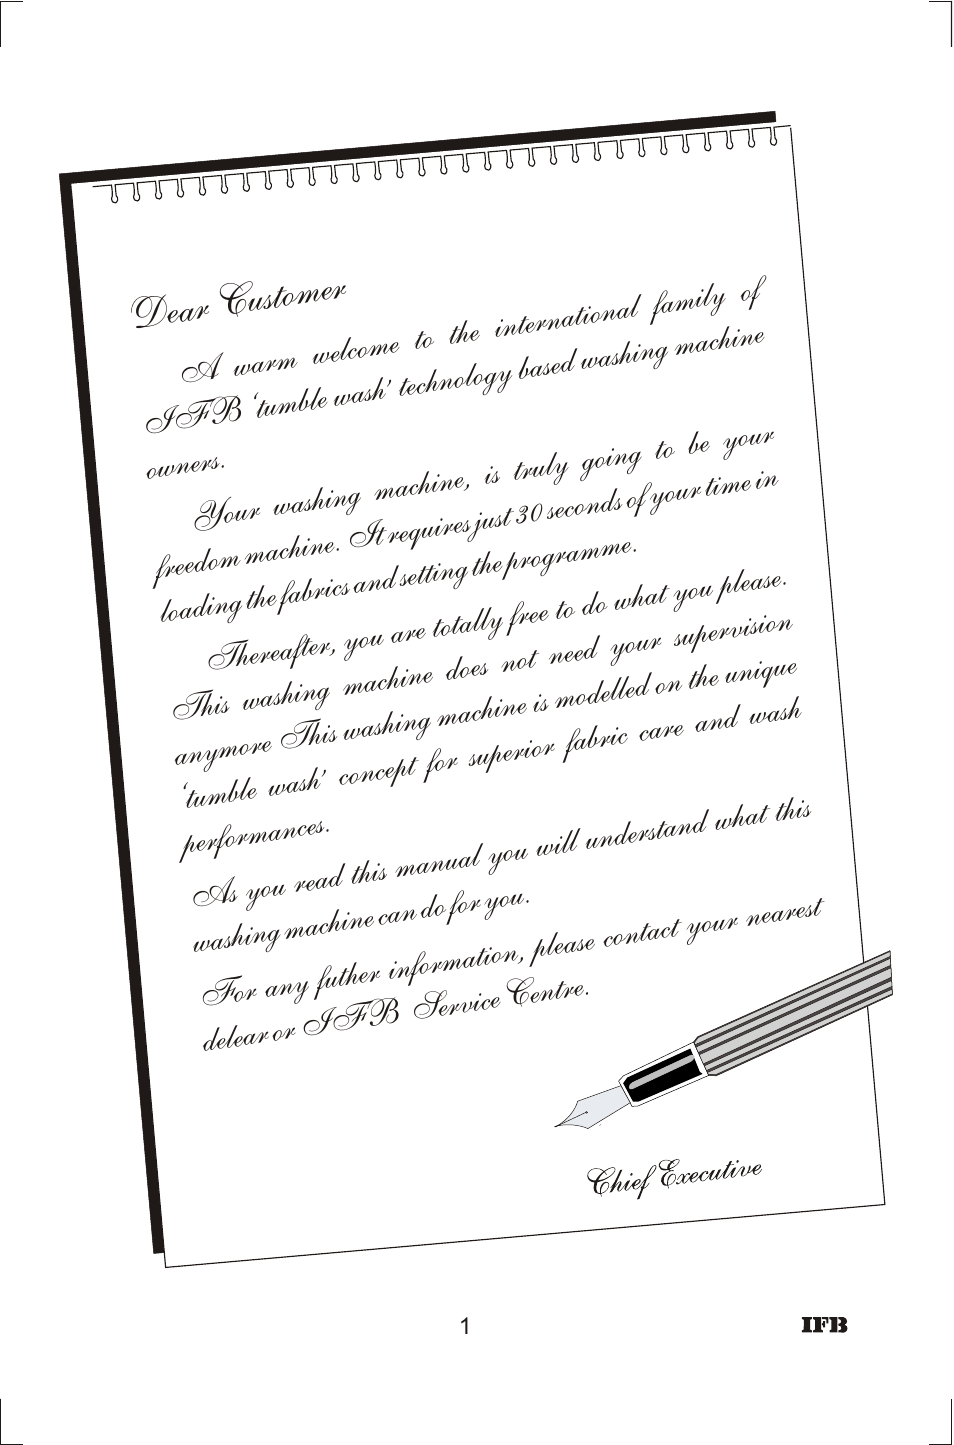 Dear Customer
A warm welcome to the international family of
IFB 'tumble wash' technology based washing machine
owners.
Your washing machine, is truly going to be your
freedom machine. It requires just 30 seconds of your time in
loading the fabrics and setting the programme.
Thereafter, you are totally free to do what you please.
This washing machine does not need your supervision
anymore This washing machine is modelled on the unique
'tumble wash' concept for superior fabric care and wash
performances.
As you read this manual you will understand what this
washing machine can do for you.
For any futher information, please contact your nearest
delear or IFB Service Centre.
Chief Executive
1
IFB